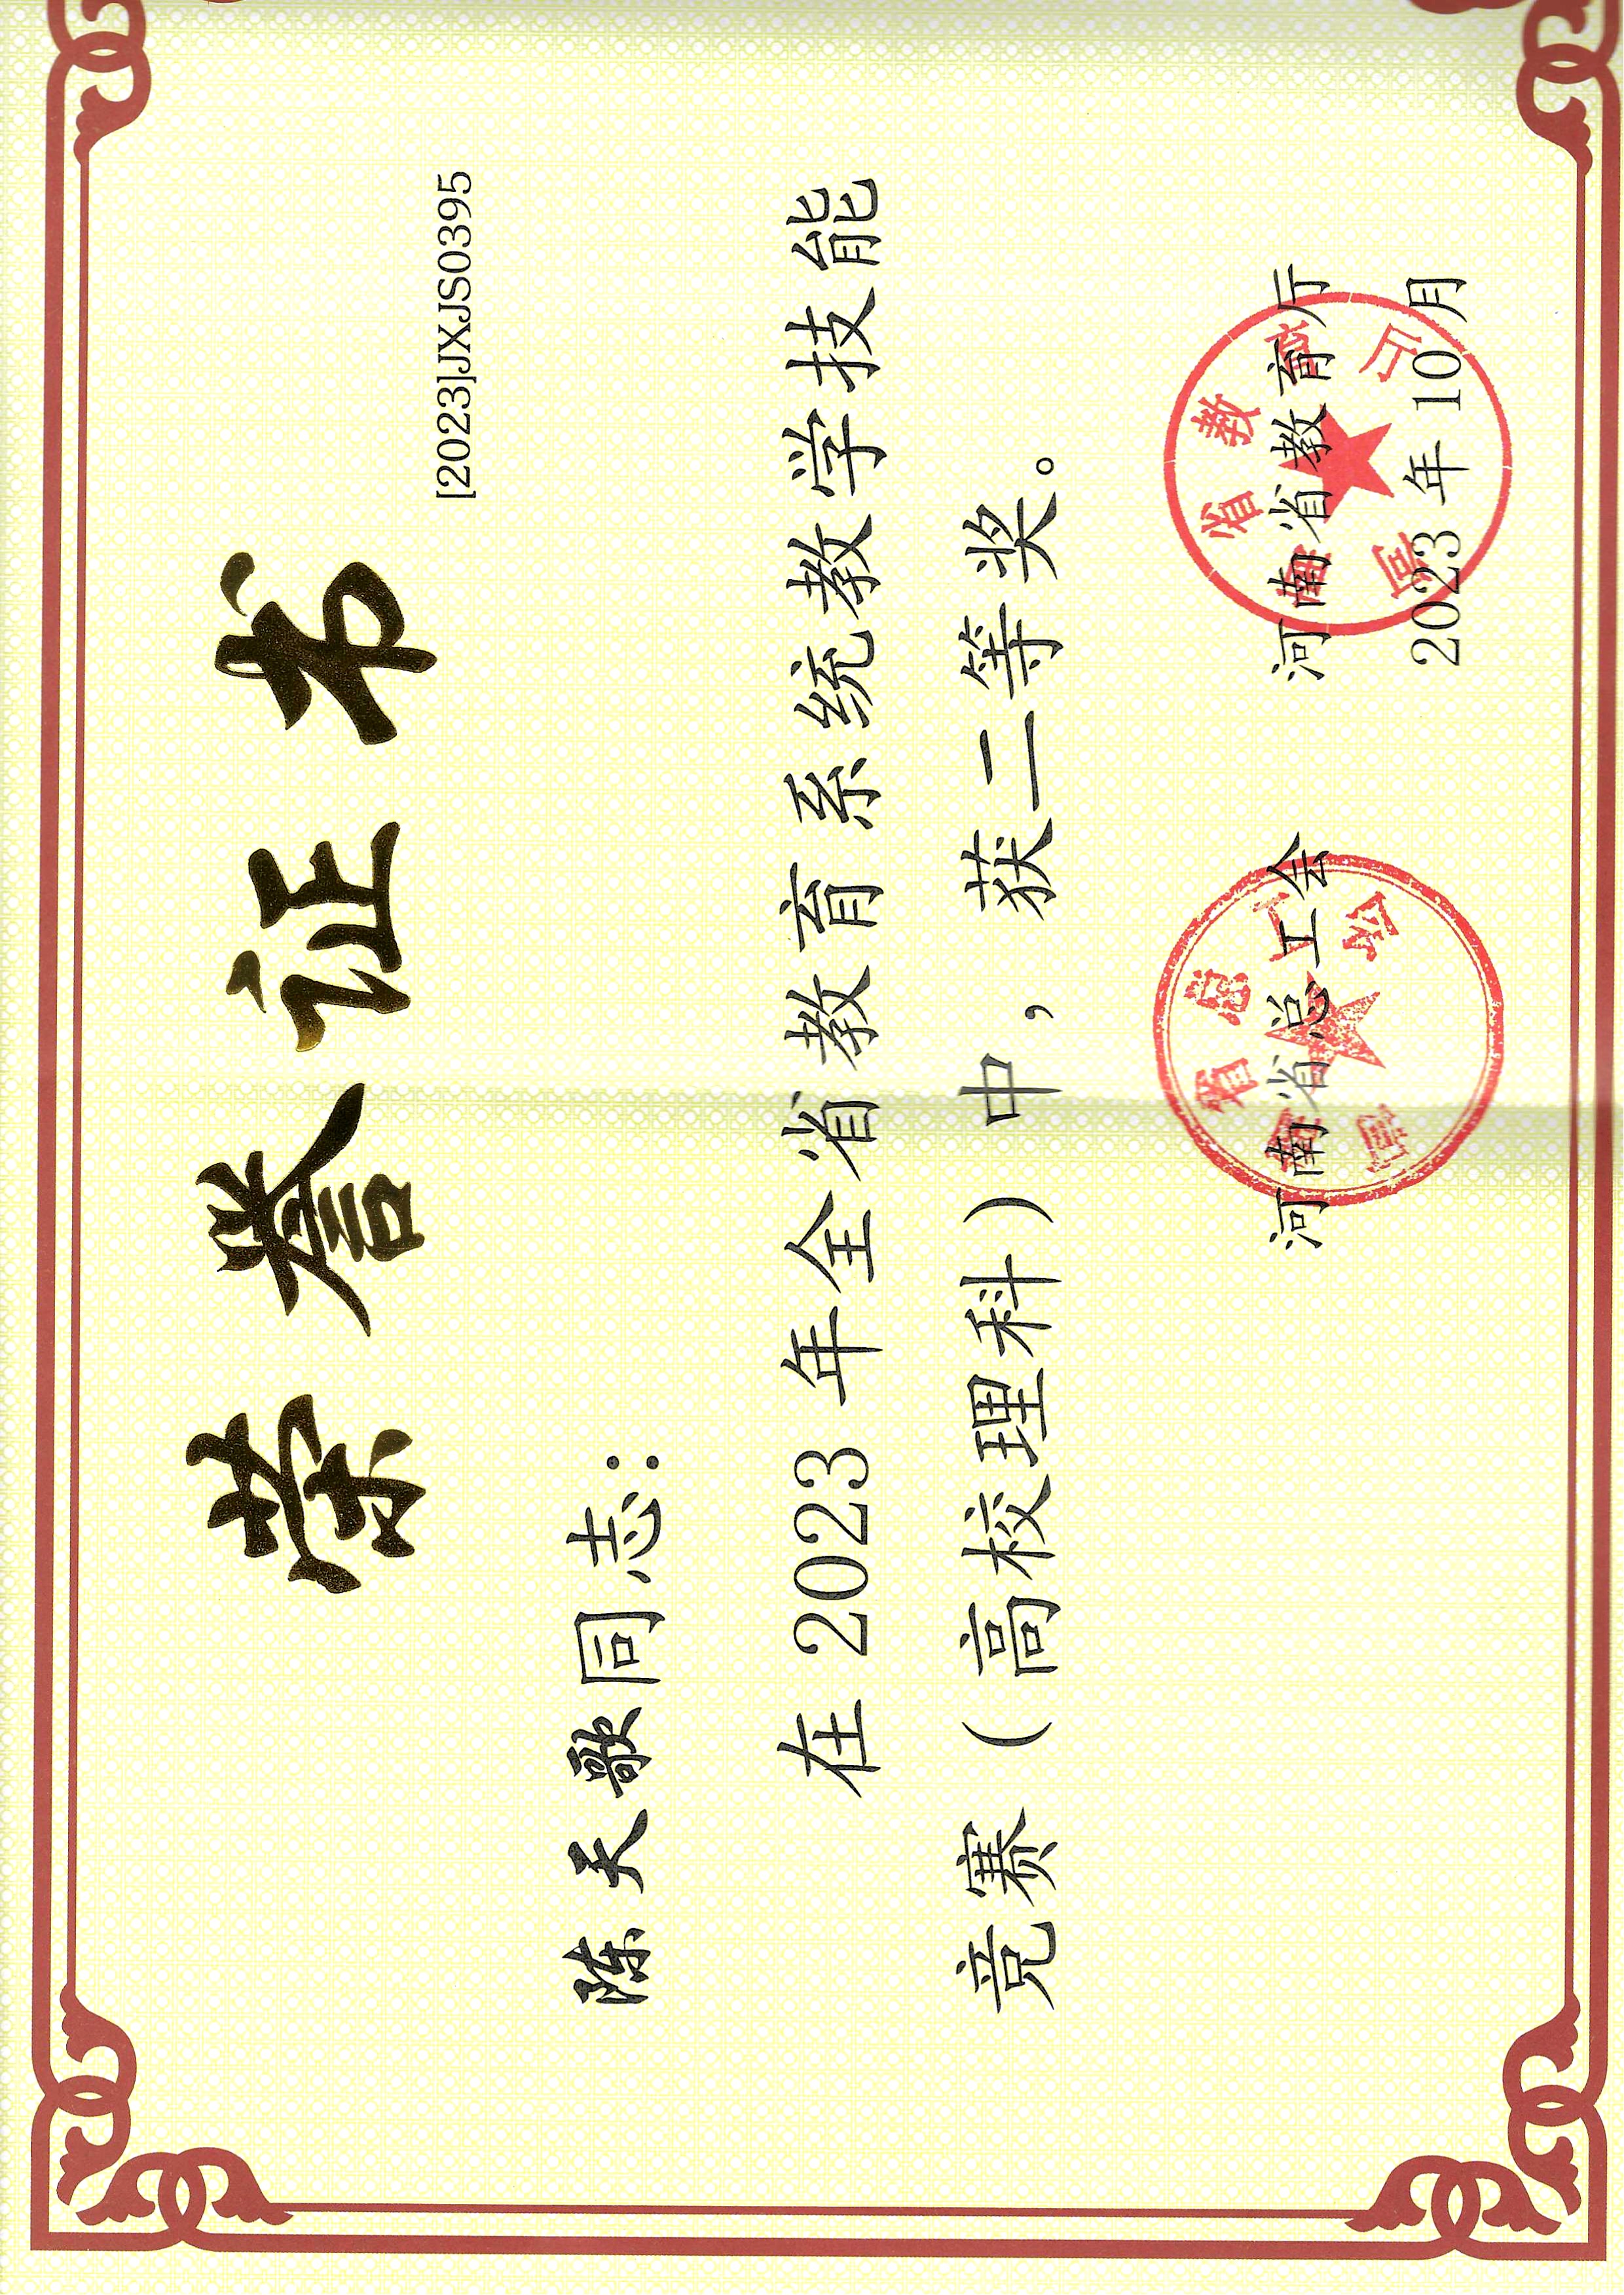 荣誉证书
[2023]JXJS0395
陈天歌同志：
在2023年全省教育系统教学技能
竞赛（高校理科）中，获二等奖。
河南省总工会 河南省教育厅
2023年10月